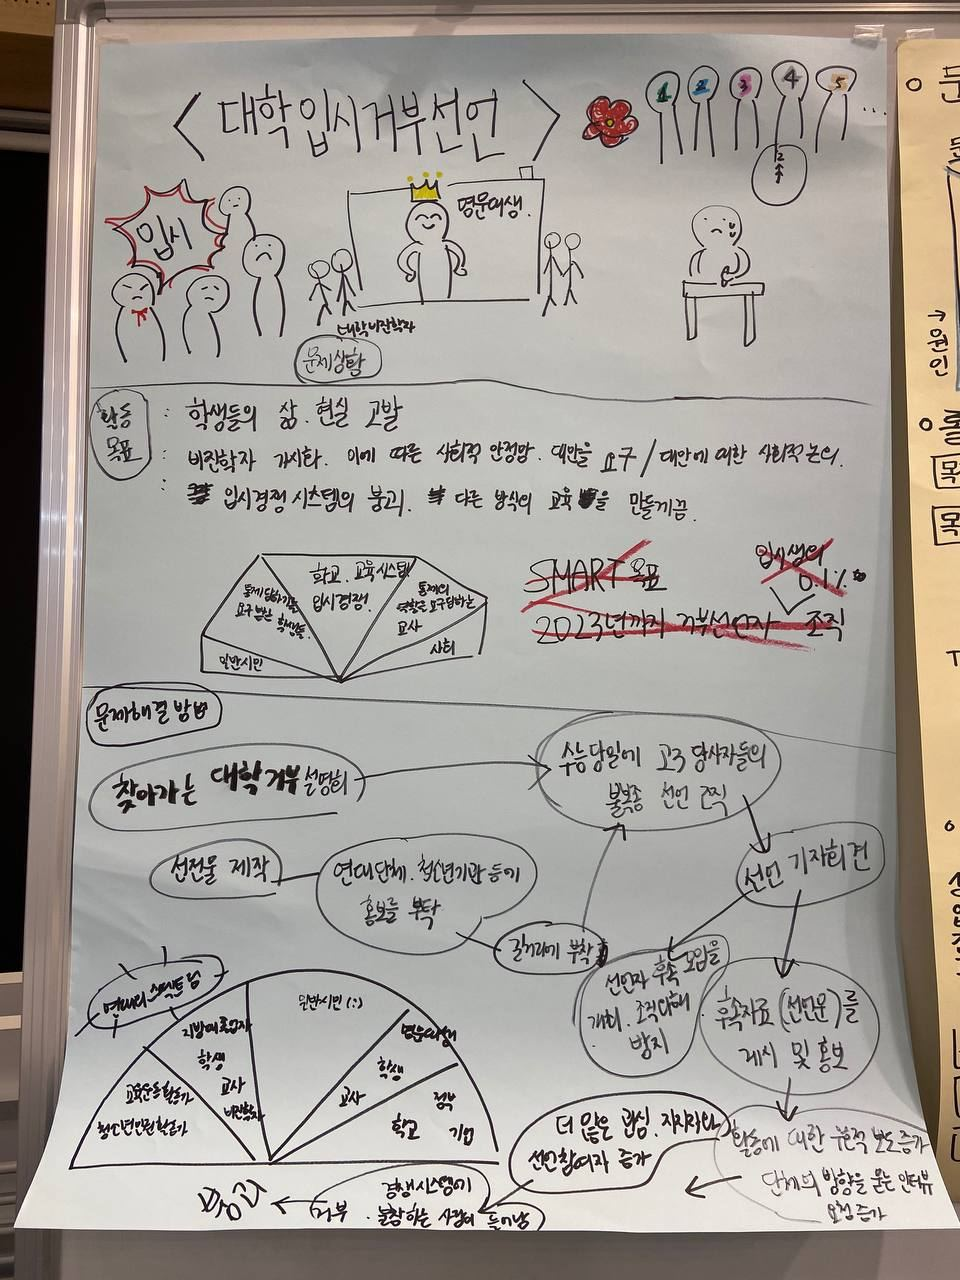 <대학입시거부선언>
1 2 3 4 5 ...
2
입시
명문대생.
대학비진학자
문제상황
활동
목표
: 학생들의 삶. 현실 고발
: 비진학자 가시화. 이에 따른 사회적 안정망. 대안을 요구 / 대안에 대한 사회적 논의.
: 입시경쟁 시스템의 붕괴. 다른 방식의 교육을 만들게끔
SMART 목표
입시생의
0.1%
2023년까지 거부선언자 조직
학교. 교육시스템.
입시경쟁.
통제 당하기를
요구 받는 학생들.
통제의
역할을 요구당하는
교사
일반시민
사회
문제해결 방법
찾아가는 대학거부 설명회
수능당일에 고3 당사자들의
불복종 선언 조직
선전물 제작
연대단체. 청소년기관 등에
홍보를 부탁
길거리에 부착
선언 기자회견
선언자 후속 모임을
개최. 조직와해
방지
후속자료(선언문)를
게시 및 홍보
연대의 스펙트럼
교육운동활동가
청소년인권활동가
학생
교사
비진학자
일반시민(:)
명문대생
학생
교사
정부
학교
기업
더 많은 관심. 지지자와
선언참여자 증가
활동에 대한 보도증가
단체의 방향을 묻는 인터뷰
요청 증가
경쟁시스템에
거부. 불참하는 사람이 늘어남
붕괴
문
→
원
인